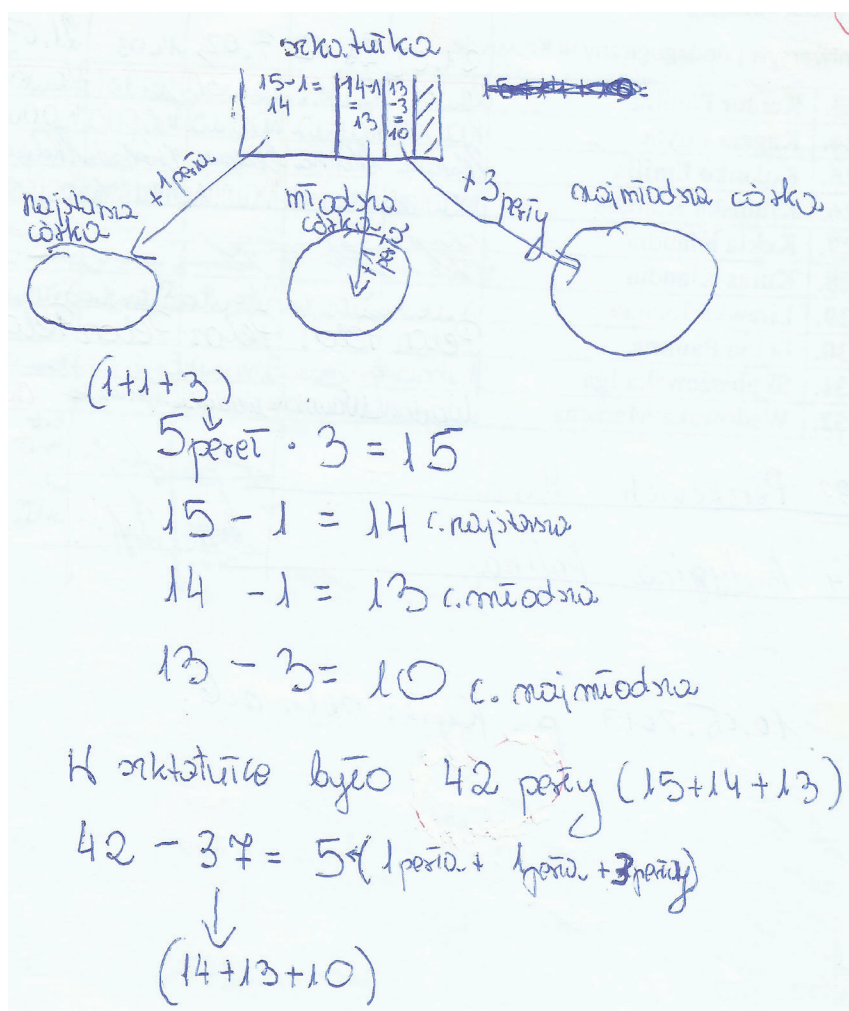 szkatułka
15-1=
14
14-1
=
13
13
-3
=
10
+1 perła
+1 perła
+3 perły
najstarsza
córka
młodsza
córka
najmłodsza córka
(1+1+3)
5 pereł · 3 = 15
15 - 1 = 14 c. najstarsza
14 - 1 = 13 c. młodsza
13 - 3 = 10 c. najmłodsza
W szkatułce było 42 perły (15+14+13)
42 - 37 = 5 (1 perła + 1 perła + 3 perły)
(14+13+10)